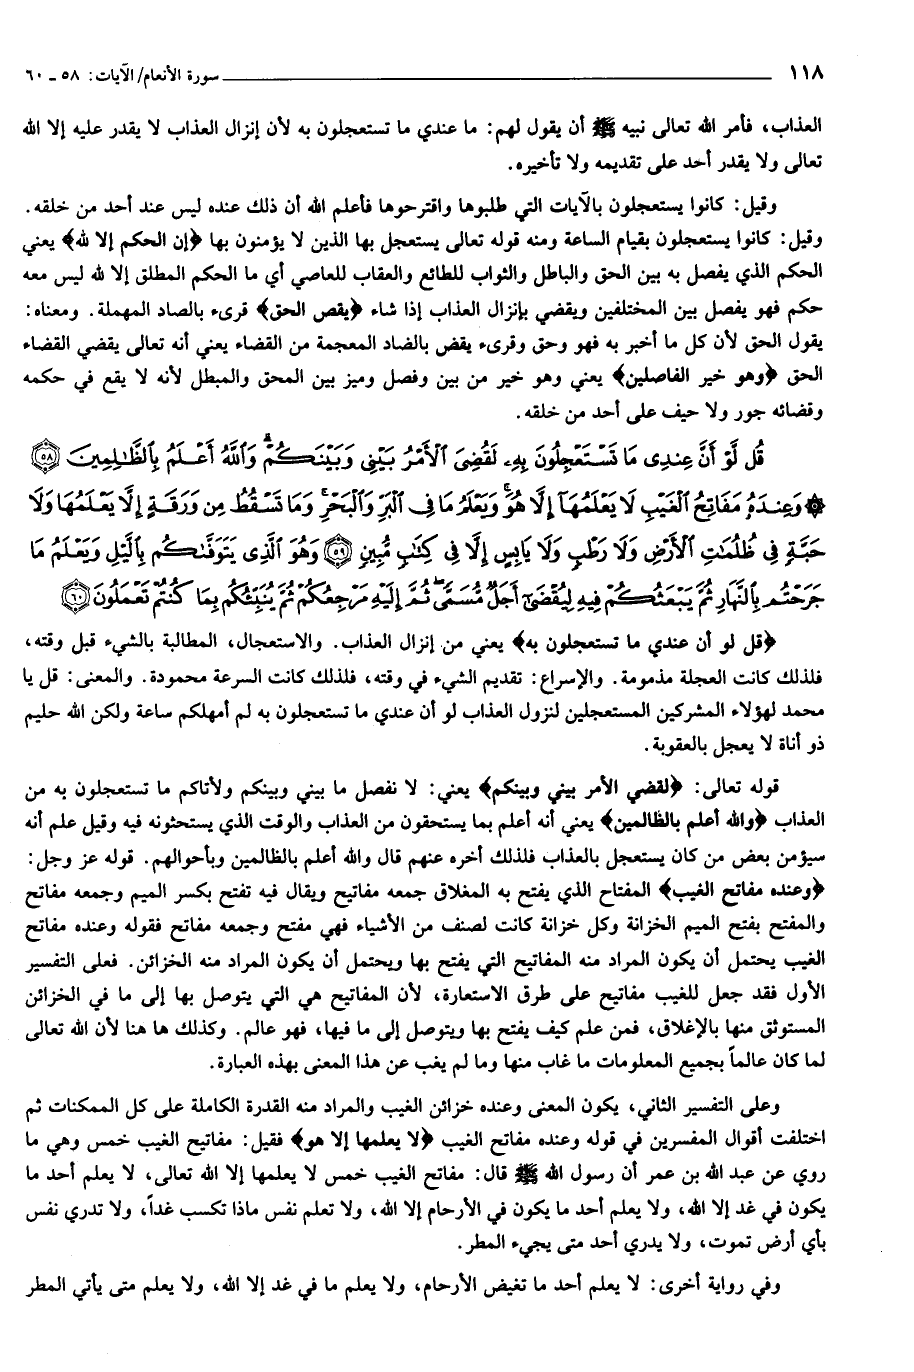 ١١٨ سورة الأنعام/ الآيات: ٥٨ ـ ٦٠
العذاب، فأمر الله تعالى نبيه ﷺ أن يقول لهم: ما عندي ما تستعجلون به لأن إنزال العذاب لا يقدر عليه إلا الله
تعالى ولا يقدر أحد على تقديمه ولا تأخيره.
وقيل: كانوا يستعجلون بالآيات التي طلبوها واقترحوها فأعلم الله أن ذلك عنده ليس عند أحد من خلقه.
وقيل: كانوا يستعجلون بقيام الساعة ومنه قوله تعالى يستعجل بها الذين لا يؤمنون بها ﴿إن الحكم إلا لله﴾ يعني
الحكم الذي يفصل به بين الحق والباطل والثواب للطائع والعقاب للعاصي أي ما الحكم المطلق إلا لله ليس معه
حكم فهو يفصل بين المختلفين ويقضي بإنزال العذاب إذا شاء ﴿يقص الحق﴾ قرىء بالصاد المهملة. ومعناه:
يقول الحق لأن كل ما أخبر به فهو وحق وقرىء يقض بالضاد المعجمة من القضاء يعني أنه تعالى يقضي القضاء
الحق ﴿وهو خير الفاصلين﴾ يعني وهو خير من بين وفصل وميز بين المحق والمبطل لأنه لا يقع في حكمه
وقضائه جور ولا حيف على أحد من خلقه.
قُل لَّوْ أَنَّ عِندِى مَا تَسْتَعْجِلُونَ بِهِۦ لَقُضِىَ ٱلْأَمْرُ بَيْنِى وَبَيْنَكُمْ ۗ وَٱللَّهُ أَعْلَمُ بِٱلظَّٰلِمِينَ ﴿٥٨﴾
۞ وَعِندَهُۥ مَفَاتِحُ ٱلْغَيْبِ لَا يَعْلَمُهَآ إِلَّا هُوَ ۚ وَيَعْلَمُ مَا فِى ٱلْبَرِّ وَٱلْبَحْرِ ۚ وَمَا تَسْقُطُ مِن وَرَقَةٍ إِلَّا يَعْلَمُهَا وَلَا
حَبَّةٍ فِى ظُلُمَٰتِ ٱلْأَرْضِ وَلَا رَطْبٍ وَلَا يَابِسٍ إِلَّا فِى كِتَٰبٍ مُّبِينٍ ﴿٥٩﴾ وَهُوَ ٱلَّذِى يَتَوَفَّىٰكُم بِٱلَّيْلِ وَيَعْلَمُ مَا
جَرَحْتُم بِٱلنَّهَارِ ثُمَّ يَبْعَثُكُمْ فِيهِ لِيُقْضَىٰٓ أَجَلٌ مُّسَمًّى ۖ ثُمَّ إِلَيْهِ مَرْجِعُكُمْ ثُمَّ يُنَبِّئُكُم بِمَا كُنتُمْ تَعْمَلُونَ ﴿٦٠﴾
﴿قل لو أن عندي ما تستعجلون به﴾ يعني من إنزال العذاب. والاستعجال، المطالبة بالشيء قبل وقته،
فلذلك كانت العجلة مذمومة. والإسراع: تقديم الشيء في وقته، فلذلك كانت السرعة محمودة. والمعنى: قل يا
محمد لهؤلاء المشركين المستعجلين لنزول العذاب لو أن عندي ما تستعجلون به لم أمهلكم ساعة ولكن الله حليم
ذو أناة لا يعجل بالعقوبة.
قوله تعالى: ﴿لقضي الأمر بيني وبينكم﴾ يعني: لا نفصل ما بيني وبينكم ولأتاكم ما تستعجلون به من
العذاب ﴿والله أعلم بالظالمين﴾ يعني أنه أعلم بما يستحقون من العذاب والوقت الذي يستحثونه فيه وقيل علم أنه
سيؤمن بعض من كان يستعجل بالعذاب فلذلك أخره عنهم قال والله أعلم بالظالمين وبأحوالهم. قوله عز وجل:
﴿وعنده مفاتح الغيب﴾ المفتاح الذي يفتح به المغلاق جمعه مفاتيح ويقال فيه تفتح بكسر الميم وجمعه مفاتح
والمفتح بفتح الميم الخزانة وكل خزانة كانت لصنف من الأشياء فهي مفتح وجمعه مفاتح فقوله وعنده مفاتح
الغيب يحتمل أن يكون المراد منه المفاتيح التي يفتح بها ويحتمل أن يكون المراد منه الخزائن. فعلى التفسير
الأول فقد جعل للغيب مفاتيح على طرق الاستعارة، لأن المفاتيح هي التي يتوصل بها إلى ما في الخزائن
المستوثق منها بالإغلاق، فمن علم كيف يفتح بها ويتوصل إلى ما فيها، فهو عالم. وكذلك ها هنا لأن الله تعالى
لما كان عالماً بجميع المعلومات ما غاب منها وما لم يغب عن هذا المعنى بهذه العبارة.
وعلى التفسير الثاني، يكون المعنى وعنده خزائن الغيب والمراد منه القدرة الكاملة على كل الممكنات ثم
اختلفت أقوال المفسرين في قوله وعنده مفاتح الغيب ﴿لا يعلمها إلا هو﴾ فقيل: مفاتيح الغيب خمس وهي ما
روي عن عبد الله بن عمر أن رسول الله ﷺ قال: مفاتح الغيب خمس لا يعلمها إلا الله تعالى، لا يعلم أحد ما
يكون في غد إلا الله، ولا يعلم أحد ما يكون في الأرحام إلا الله، ولا تعلم نفس ماذا تكسب غداً، ولا تدري نفس
بأي أرض تموت، ولا يدري أحد متى يجيء المطر.
وفي رواية أخرى: لا يعلم أحد ما تغيض الأرحام، ولا يعلم ما في غد إلا الله، ولا يعلم متى يأتي المطر